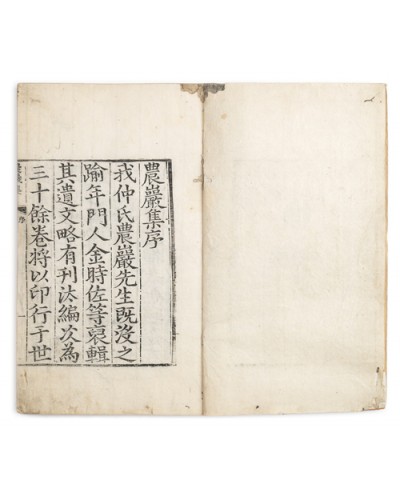 農巖集序
我仲氏農巖先生既沒之
踰年門人金時佐等裒輯
其遺文略有刊汰編次為
三十餘卷將以印行于世